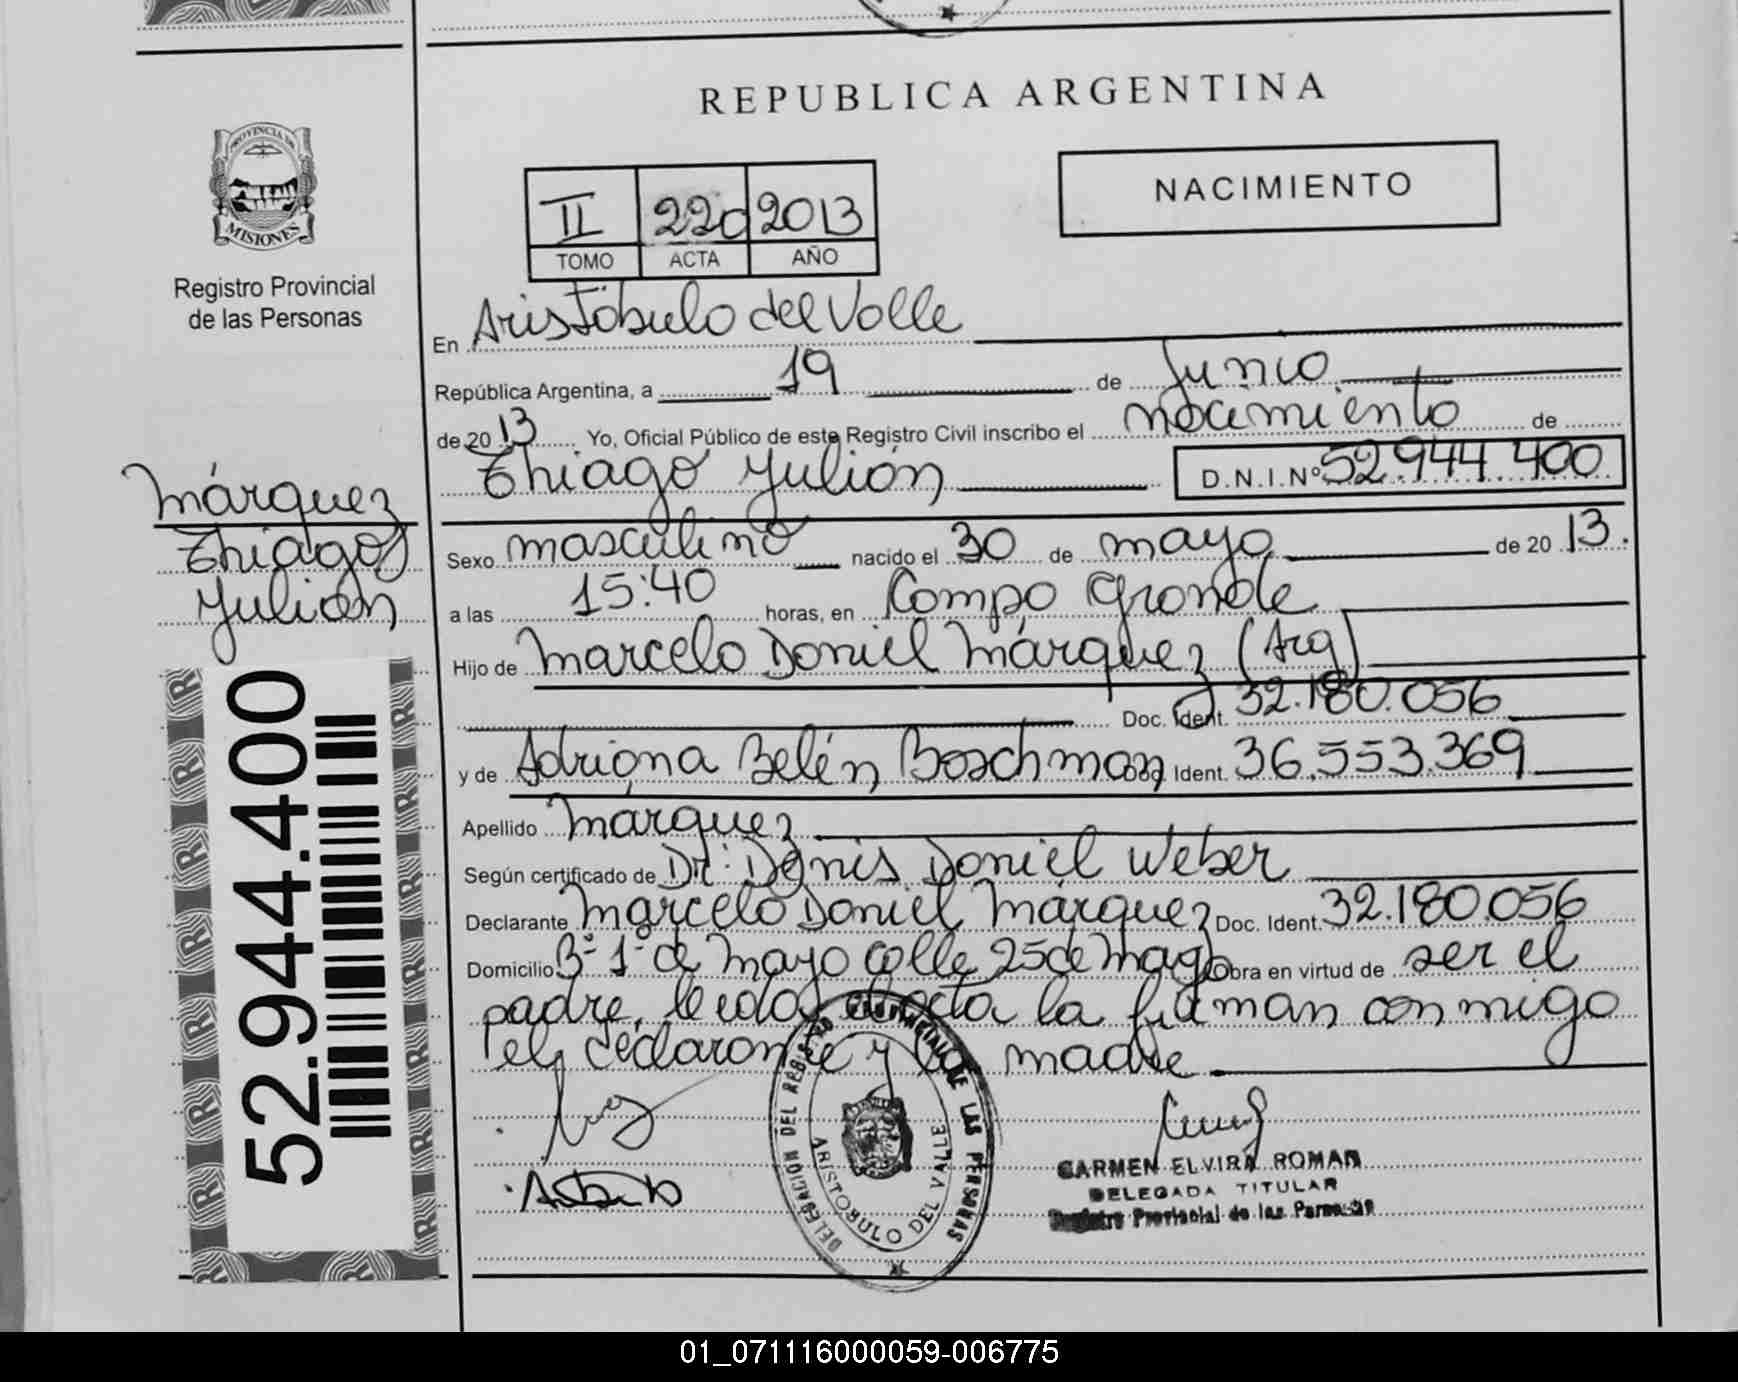 REPUBLICA ARGENTINA
PROVINCIA DE MISIONES
Registro Provincial
de las Personas
NACIMIENTO
II 220 2013
TOMO ACTA AÑO
En Aristóbulo del Valle
República Argentina, a 19 de Junio
de 20 13 Yo, Oficial Público de este Registro Civil inscribo el nacimiento de
Thiago Julián D.N.I.Nº 52.944.400
Márquez
Thiago
Julián
52.944.400
Sexo masculino nacido el 30 de mayo de 20 13.
a las 15:40 horas, en Campo Grande
Hijo de Marcelo Daniel Márquez (Arg)
Doc. Ident. 32.180.056
y de Adriana Belén Boschman Doc. Ident. 36.553.369
Apellido Márquez
Según certificado de Dr. Denis Daniel Weber
Declarante Marcelo Daniel Márquez Doc. Ident. 32.180.056
Domicilio Bº 1º de Mayo calle 25 de Mayo Obra en virtud de ser el
padre, leída el acta la firman conmigo
el declarante y la madre
DELEGACIÓN DEL REGISTRO PROVINCIAL DE LAS PERSONAS
ARISTOBULO DEL VALLE
CARMEN ELVIRA ROMAN
DELEGADA TITULAR
Registro Provincial de las Personas
01_071116000059-006775